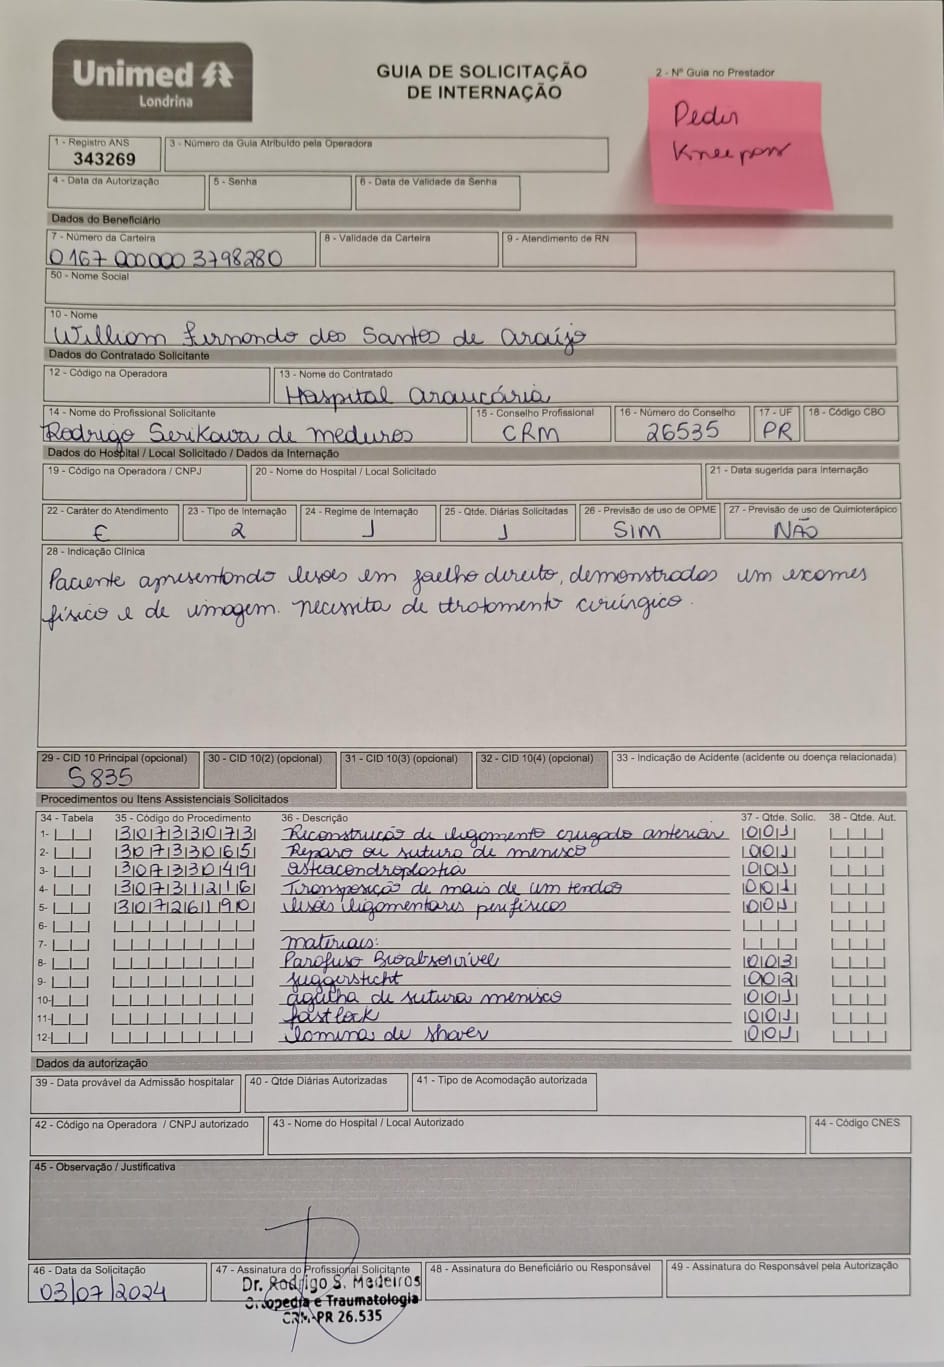 Unimed
Londrina
GUIA DE SOLICITAÇÃO
DE INTERNAÇÃO
2 - Nº Guia no Prestador
Pedir
1 - Registro ANS
343269
3 - Número da Guia Atribuído pela Operadora
4 - Data da Autorização
5 - Senha
6 - Data de Validade da Senha
Dados do Beneficiário
7 - Número da Carteira
0167 000000 3798280
8 - Validade da Carteira
9 - Atendimento de RN
50 - Nome Social
10 - Nome
William Fernando dos Santos de Araújo
Dados do Contratado Solicitante
12 - Código na Operadora
13 - Nome do Contratado
Hospital Araucária
14 - Nome do Profissional Solicitante
Rodrigo Serikawa de Medeiros
15 - Conselho Profissional
CRM
16 - Número do Conselho
26535
17 - UF
PR
18 - Código CBO
Dados do Hospital / Local Solicitado / Dados da Internação
19 - Código na Operadora / CNPJ
20 - Nome do Hospital / Local Solicitado
21 - Data sugerida para internação
22 - Caráter do Atendimento
E
23 - Tipo de Internação
2
24 - Regime de Internação
1
25 - Qtde. Diárias Solicitadas
1
26 - Previsão de uso de OPME
SIM
27 - Previsão de uso de Quimioterápico
NÃO
28 - Indicação Clínica
Paciente apresentando lesões em joelho direito, demonstradas em exames
físico e de imagem. necessita de tratamento cirúrgico.
29 - CID 10 Principal (opcional)
S835
30 - CID 10(2) (opcional)
31 - CID 10(3) (opcional)
32 - CID 10(4) (opcional)
33 - Indicação de Acidente (acidente ou doença relacionada)
Procedimentos ou Itens Assistenciais Solicitados
34 - Tabela 35 - Código do Procedimento 36 - Descrição 37 - Qtde. Solic. 38 - Qtde. Aut.
1- 30733073 Reconstrução de ligamento cruzado anterior 001
2- 30733065 Reparo ou sutura de menisco 001
3- 30733049 osteocondroplastia 001
4- 30731216 Transposição de mais de um tendão 001
5- 30726190 lesões ligamentares periféricas 001
6-
7- materiais:
8- Parafuso Bioabsorvível 003
9- 002
10- agulha de sutura menisco 001
11- fastlock 001
12- lamina de shaver 001
Dados da autorização
39 - Data provável da Admissão hospitalar
40 - Qtde Diárias Autorizadas
41 - Tipo de Acomodação autorizada
42 - Código na Operadora / CNPJ autorizado
43 - Nome do Hospital / Local Autorizado
44 - Código CNES
45 - Observação / Justificativa
46 - Data da Solicitação
03/07/2024
47 - Assinatura do Profissional Solicitante
Dr. Rodrigo S. Medeiros
Ortopedia e Traumatologia
CRM-PR 26.535
48 - Assinatura do Beneficiário ou Responsável
49 - Assinatura do Responsável pela Autorização